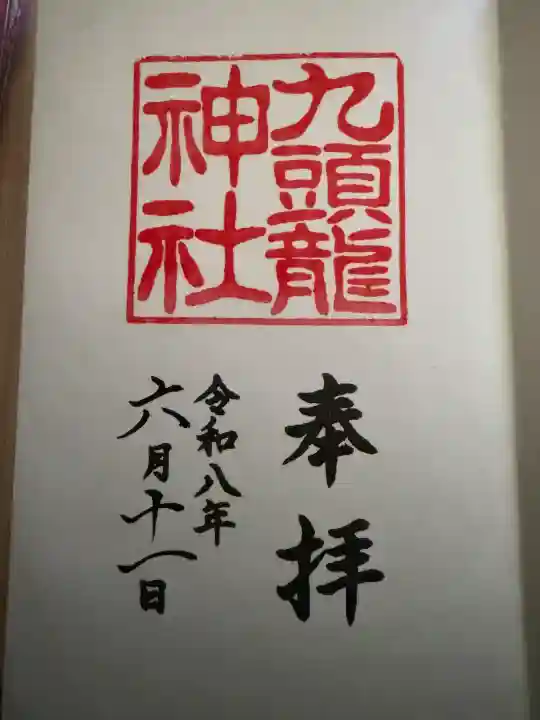 九頭龍
神社
奉拝
令和八年
六月十一日